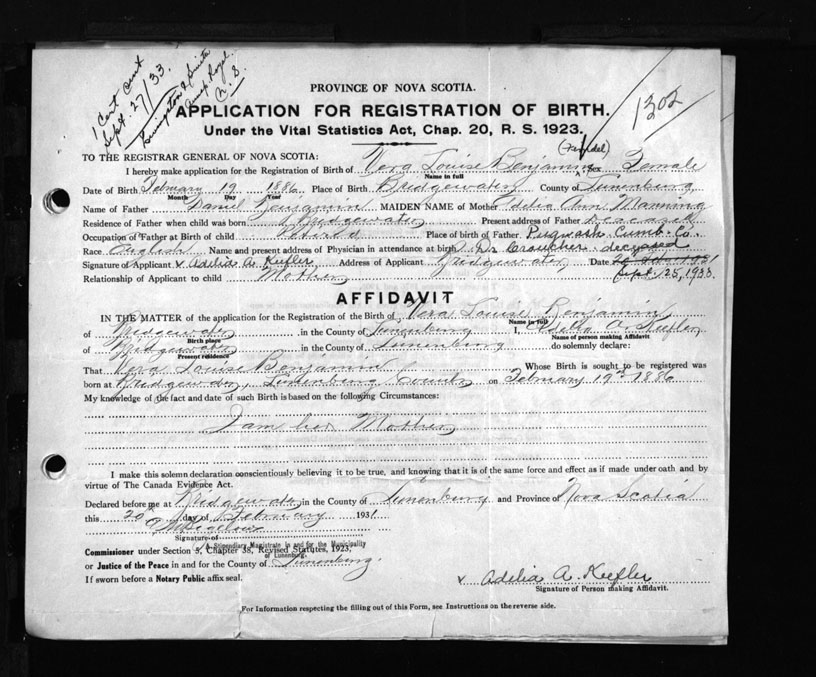 1 Cent Cent
Sept. 27/33.
Livingston & Smith
Annap Royal.
N. S.
1302
PROVINCE OF NOVA SCOTIA.
APPLICATION FOR REGISTRATION OF BIRTH.
Under the Vital Statistics Act, Chap. 20, R. S. 1923.
TO THE REGISTRAR GENERAL OF NOVA SCOTIA:
I hereby make application for the Registration of Birth of Vera Louise Benjamin Sex Female
Name in full
Date of Birth February 19 1886 Place of Birth Bridgewater, County of Lunenburg
Month Day Year
Name of Father Daniel Benjamin MAIDEN NAME of Mother Adelia Ann Manning
Residence of Father when child was born Bridgewater Present address of Father deceased
Occupation of Father at Birth of child Place of birth of Father. Pugwash Cumb. Co.
Race English Name and present address of Physician in attendance at birth Dr Croucher. deceased
Signature of Applicant x Adelia A. Keefler Address of Applicant Bridgewater, Date 20 Feb. 1931
Sept. 25, 1933.
Relationship of Applicant to child Mother
AFFIDAVIT
IN THE MATTER of the application for the Registration of the Birth of Vera Louise Benjamin
Name in full
of Bridgewater in the County of Lunenburg I, Adelia A. Keefler,
Birth place Name of person making Affidavit
of Bridgewater in the County of Lunenburg do solemnly declare:
Present residence
That Vera Louise Benjamin Whose Birth is sought to be registered was
born at Bridgewater, Lunenburg County on February 19th 1886
My knowledge of the fact and date of such Birth is based on the following Circumstances:
I am her Mother
I make this solemn declaration conscientiously believing it to be true, and knowing that it is of the same force and effect as if made under oath and by
virtue of The Canada Evidence Act.
Declared before me at Bridgewater in the County of Lunenburg and Province of Nova Scotia
this 20th day of February 1931
Signature of
Stipendiary Magistrate in and for the Municipality
Commissioner under Section 5, Chapter 38, Revised Statutes, 1923,
of Lunenburg.
or Justice of the Peace in and for the County of Lunenburg.
If sworn before a Notary Public affix seal.
x Adelia A. Keefler
Signature of Person making Affidavit.
For Information respecting the filling out of this Form, see Instructions on the reverse side.